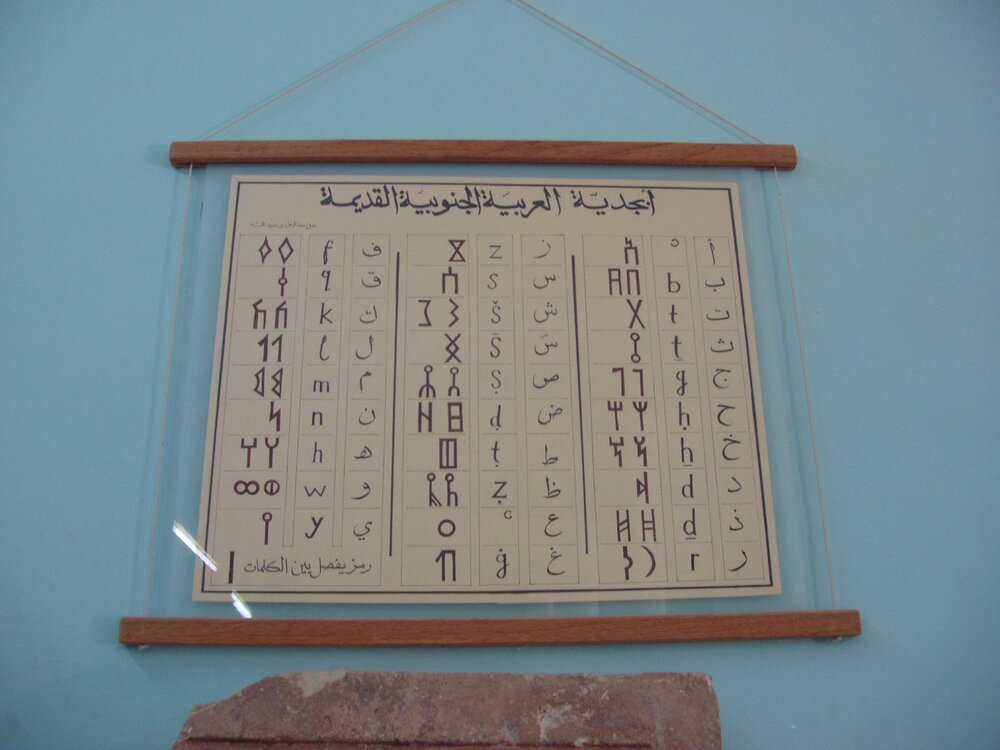 أبجديّة العربيّة الجنوبيّة القديمة
أ ʾ 𐩱
ب b 𐩨 𐩨
ت t 𐩩
ث ṯ 𐩻
ج g 𐩴 𐩴
ح ḥ 𐩢 𐩢
خ ẖ 𐩭 𐩭
د d 𐩵
ذ ḏ 𐩹 𐩹
ر r 𐩧 𐩧
ز z 𐩸
س s 𐩪
ش š 𐩦 𐩦
سَ Ś 𐩯
ص ṣ 𐩮 𐩮
ض ḍ 𐩳 𐩳
ط ṭ 𐩷
ظ ẓ 𐩼 𐩼
ع ʿ 𐩲
غ ġ 𐩶
ف f 𐩰 𐩰
ق q 𐩤
ك k 𐩫 𐩫
ل l 𐩡 𐩡
م m 𐩣 𐩣
ن n 𐩬
ه h 𐩠 𐩠
و w 𐩥 𐩥
ي y 𐩺
رمز يفصل بين الكلمات |